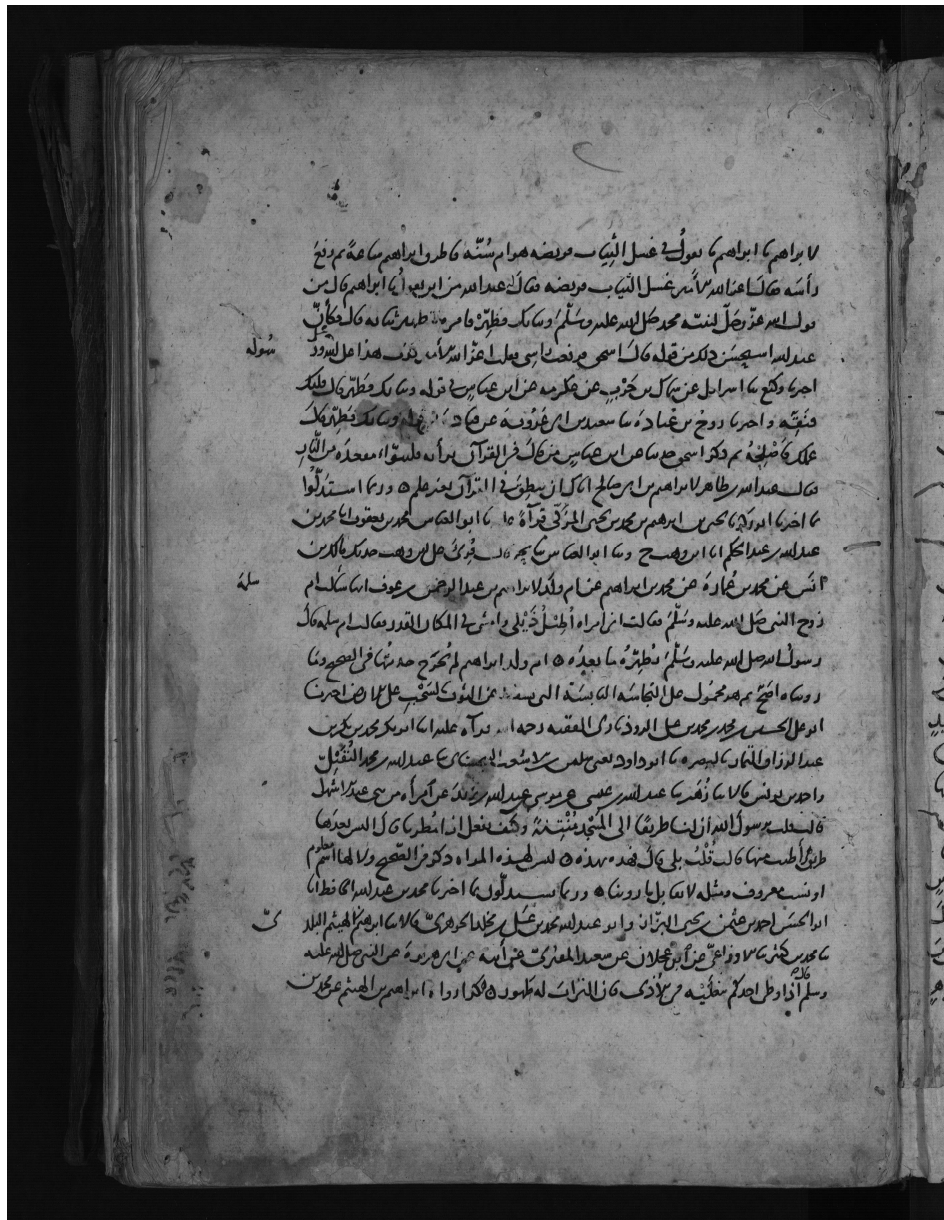 لابراهيم يا ابراهيم ما تقول في غسل الثياب فريضة هو ام سنة فاطرق ابراهيم ساعة ثم رفع
رأسه فقال اعز الله الأمير غسل الثياب فريضة فقال له عبد الله من اين تقول يا ابراهيم قال من
قول الله عز وجل لنبيه محمد صلى الله عليه وسلم وثيابك فطهر فامره بتطهير ثيابه قال فكأن
عبد الله استحسن ذلك من قوله قال اسحق فرفعت رأسي فقلت اعز الله الأمير كذب هذا على الله و
سوله
اخبرنا وكيع ثنا اسرائيل عن سماك بن حرب عن عكرمة عن ابن عباس في قوله وثيابك فطهر قال قلبك
فنقه واخبرنا روح بن عبادة ثنا سعيد بن ابي عروبة عن قتادة في قوله وثيابك فطهر قال
عملك فاصلحه ثم ذكر اسحق حديثا عن ابن عباس من قال في القرآن برأيه فليتبوأ مقعده من النار
فقال عبد الله بن طاهر لابراهيم بن ابي صالح اياك ان تنطق في القرآن بغير علم ٥ وربما استدلوا
بما اخبرنا ابو زكريا يحيى بن ابرهيم بن محمد بن يحيى المزكي قرآة ثنا ابو العباس محمد بن يعقوب انا محمد بن
عبد الله بن عبد الحكم انا ابن وهب ح وثنا ابو العباس ثنا بحر قال قرئ على ابن وهب حدثك مالك بن
انس عن محمد بن عمارة عن محمد بن ابراهيم عن ام ولد لابراهيم بن عبد الرحمن بن عوف انها سألت ام
سلمة
زوج النبي صلى الله عليه وسلم فقالت اني امراة أطيل ذيلي وامشي في المكان القذر فقالت ام سلمة قال
رسول الله صلى الله عليه وسلم يطهره ما بعده ٥ ام ولد ابراهيم لم يخرج حديثها في الصحيح وما
رويناه اصح ثم هو محمول على النجاسة اليابسة التي يسقط عن الثوب بالسحب على الارض اخبرنا
ابو علي الحسين بن محمد بن محمد بن علي الروذباري الفقيه رحمه الله قرآة عليه انا ابو بكر محمد بن بكر بن
عبد الرزاق التمار بالبصرة ثنا ابو داود يعني سليمن بن الاشعث السجستاني ثنا عبد الله بن محمد النفيلي
واحمد بن يونس قالا ثنا زهير ثنا عبد الله بن عيسى عن موسى بن عبد الله بن يزيد عن امرأة من بني عبد الاشهل
قالت قلت يرسول الله ان لنا طريقا الى المسجد منتنة وكيف نفعل اذا مطرنا قال اليس بعدها
طريق أطيب منها قالت قلت بلى قال فهذه بهذه ٥ ليس لهذه المراة ذكر في الصحيح ولا لها اسم معلوم
او نسب معروف ومثله لا يقابل ما روينا ٥ وربما يستدلون بما اخبرنا محمد بن عبد الله الحافظ انا
ابو الحسن احمد بن عثمن بن يحيى البزاز وابو عبد الله محمد بن علي بن مخلد الجوهري قالا ثنا ابرهيم بن الهيثم البلد
ي
ثنا محمد بن كثير ثنا الاوزاعي عن ابن عجلان عن سعيد المقبري عن أبيه عن ابي هريرة عن النبي صلى الله عليه
وسلم قال اذا وطئ احدكم بنعليه في الأذى فان التراب له طهور ٥ كذا رواه ابراهيم بن الهيثم عن محمد بن